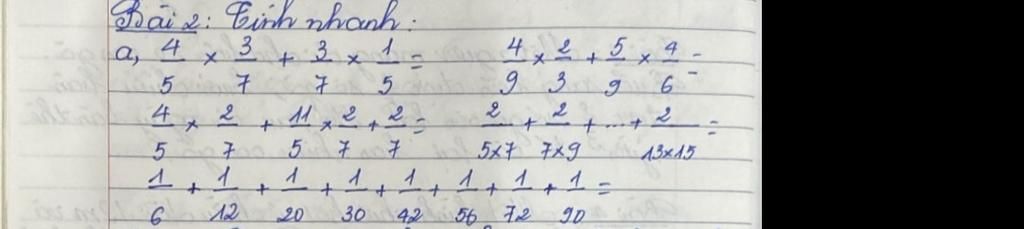 Bài 2: Tính nhanh:
a, 4/5 × 3/7 + 3/7 × 1/5 = 4/9 × 2/3 + 5/9 × 4/6 =
4/5 × 2/7 + 11/5 × 2/7 + 2/7 = 2/5×7 + 2/7×9 + ... + 2/13×15 =
1/6 + 1/12 + 1/20 + 1/30 + 1/42 + 1/56 + 1/72 + 1/90 =